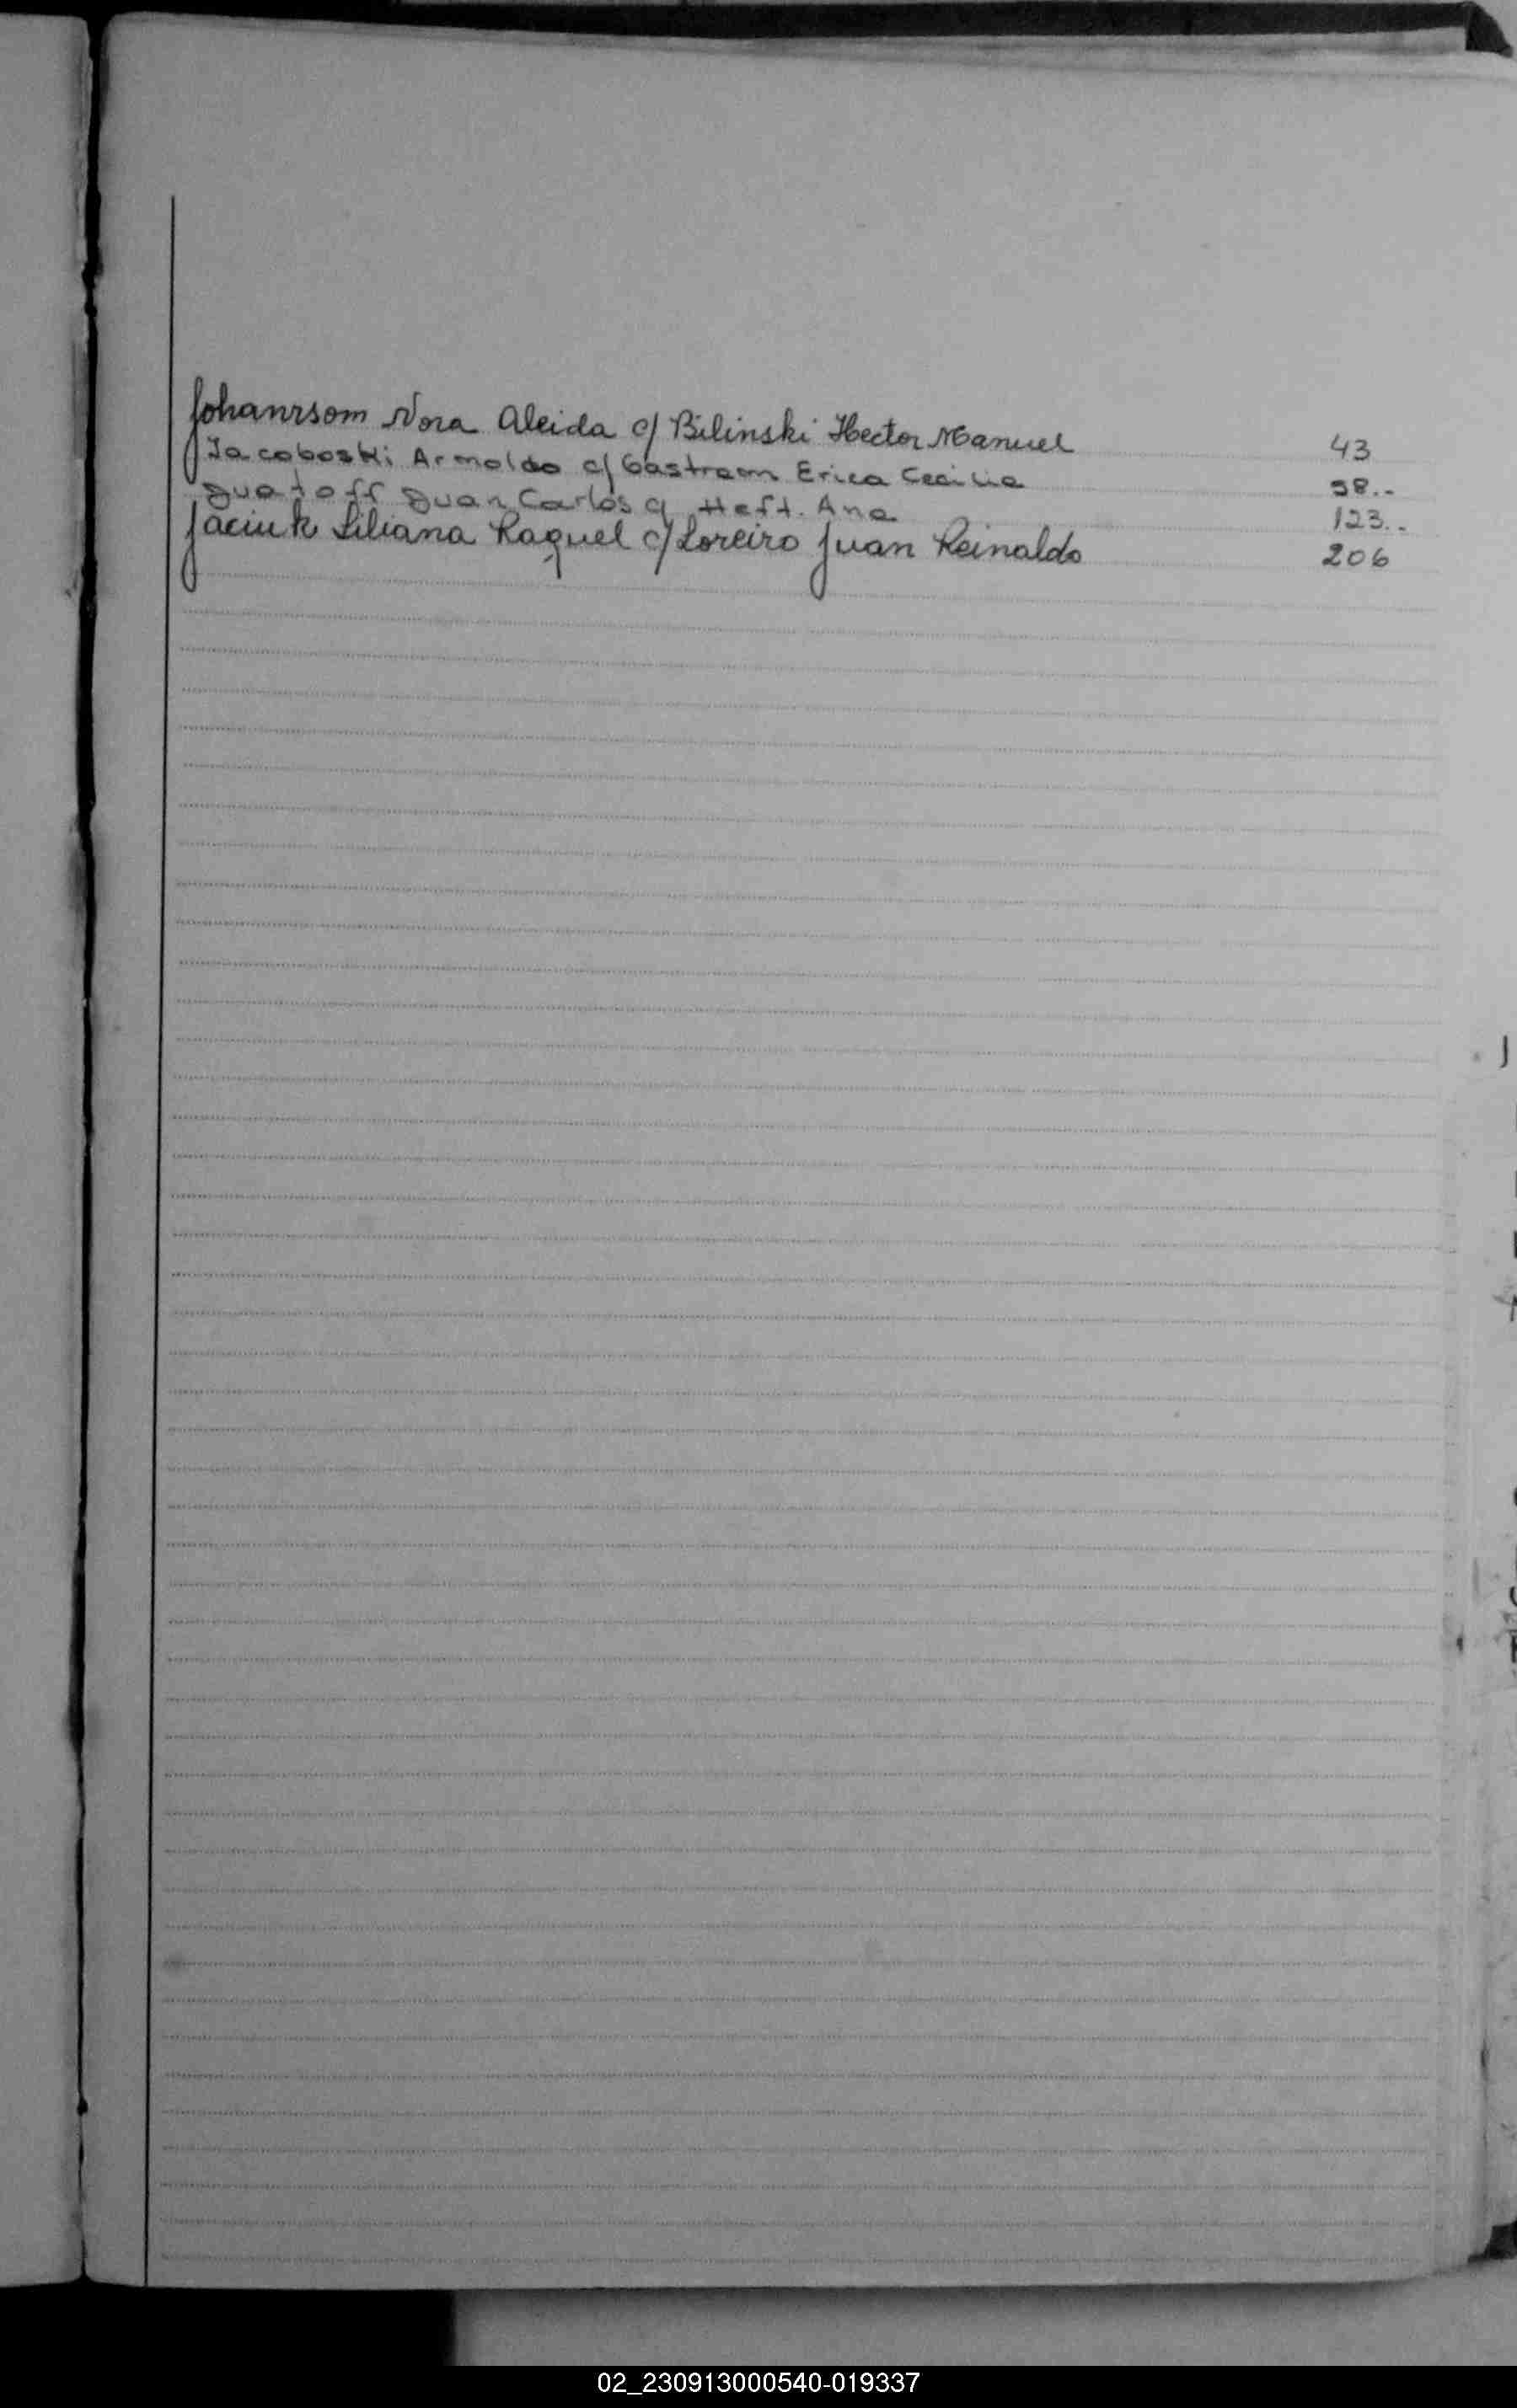 Johanrsom Nora Aleida c/ Bilinski Hector Manuel 43
Jacoboski Arnoldo c/ Gastrem Erica Cecilia 98.-
Juan Carlos c/ Heft. Ana 123.-
Jaciuk Liliana Raquel c/ Loreiro Juan Reinaldo 206
J
02_230913000540-019337